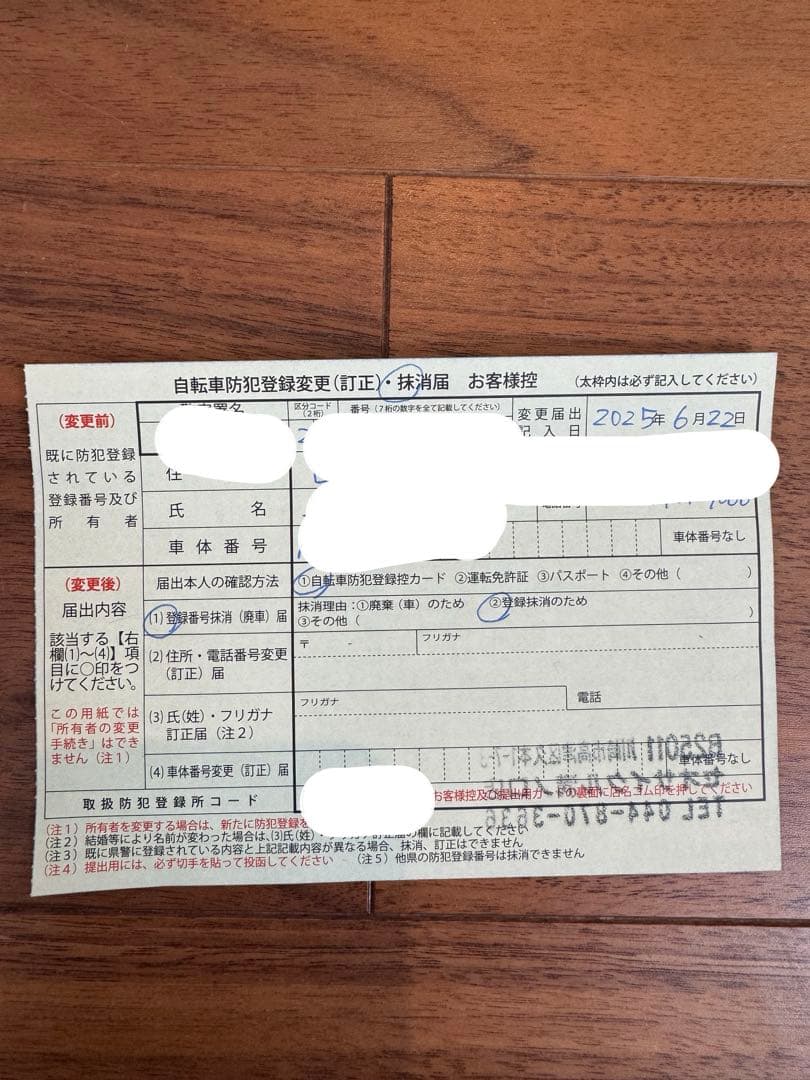 自転車防犯登録変更(訂正)・抹消届 お客様控 (太枠内は必ず記入してください)
(変更前)
既に防犯登録
されている
登録番号及び
所有者
区分コード
(2桁)
番号(7桁の数字を全て記載してください)
変更届出
記入日
2025年6月22日
住
氏名
車体番号
車体番号なし
(変更後)
届出内容
該当する【右
欄(1)~(4)】項
目に○印をつ
けてください。
この用紙では
「所有者の変更
手続き」はでき
ません(注1)
届出本人の確認方法
①自転車防犯登録控カード ②運転免許証 ③パスポート ④その他( )
(1)登録番号抹消(廃車)届
抹消理由:①廃棄(車)のため ②登録抹消のため
③その他( )
(2)住所・電話番号変更
(訂正)届
〒 -
フリガナ
(3)氏(姓)・フリガナ
訂正届(注2)
フリガナ
電話
(4)車体番号変更(訂正)届
車体番号なし
取扱防犯登録所コード
お客様控及び提出用カードの裏面に店名ゴム印を押してください
TEL 044-870-3636
(注1)所有者を変更する場合は、新たに防犯登録を
(注2)結婚等により名前が変わった場合は、(3)氏(姓)・フリガナ訂正届の欄に記載してください
(注3)既に県警に登録されている内容と上記記載内容が異なる場合、抹消、訂正はできません
(注4)提出用には、必ず切手を貼って投函してください (注5)他県の防犯登録番号は抹消できません